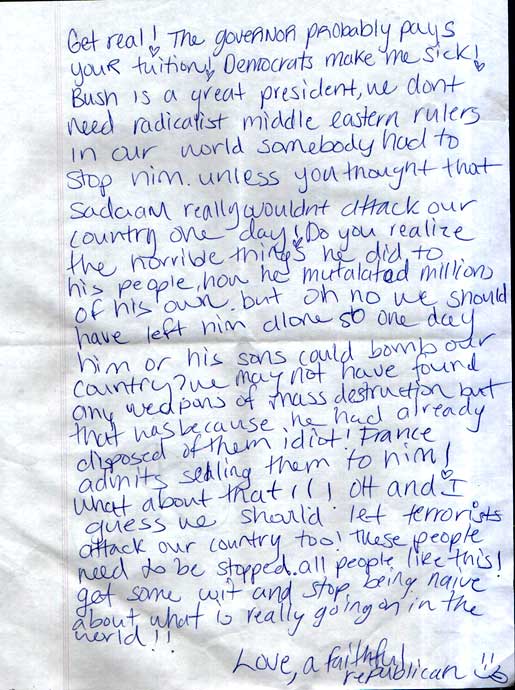 Get real! The governor probably pays
your tuition! Democrats make me sick!
Bush is a great president, we dont
need radicalist middle eastern rulers
in our world somebody had to
stop him. unless you thought that
sadaam really wouldnt attack our
country one day! Do you realize
the horrible things he did to
his people, how he mutalated millions
of his own. but oh no we should
have left him alone so one day
him or his sons could bomb our
country? we may not have found
any weapons of mass destruction but
that was because he had already
disposed of them idiot! France
admits sealing them to him!
what about that!!! OH and I
guess we should let terrorists
attack our country too! These people
need to be stopped. all people like this!
get some wit and stop being naive
about what is really going on in the
world!!
Love, a faithful
republican